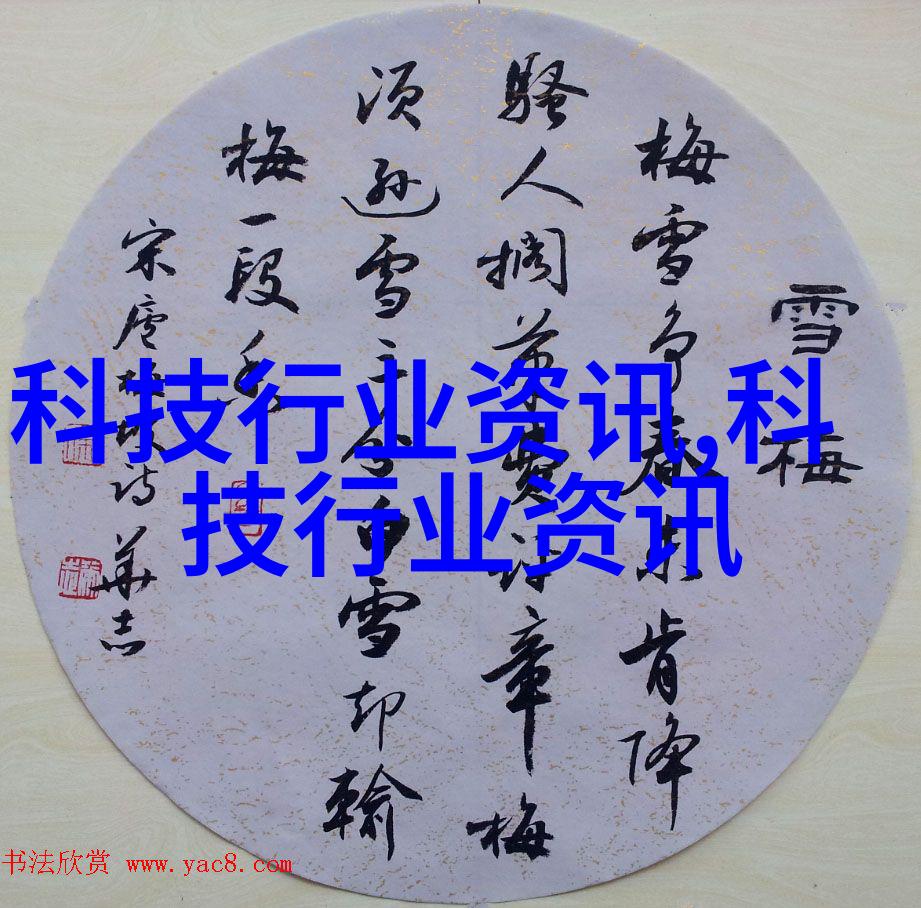 雪梅
梅雪争春未肯降
騷人搁笔费评章梅
须逊雪三分白雪却輸
梅一段香
宋盧梅坡诗華志
科技行业资讯,科
技行业资讯
书法欣赏 www.yac8.com